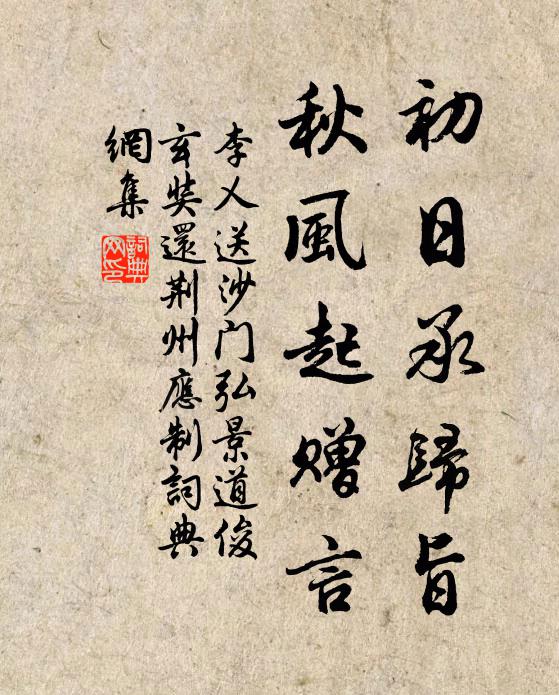 初日承歸旨
秋風起贈言
李乂送沙门弘景道俊
玄奘還荆州應制詞典
網集
詞典網印